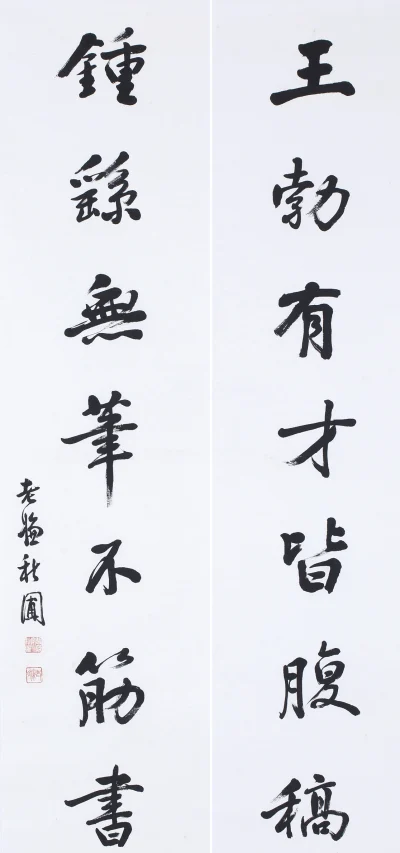 王勃有才皆腹稿
鍾繇無筆不筋書
老嫗秋圃